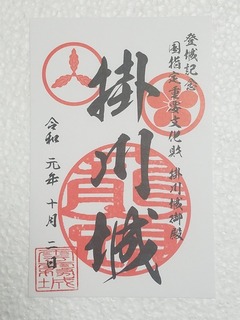 登城記念
国指定重要文化財 掛川城御殿
掛川城
令和 元年 十月 二日